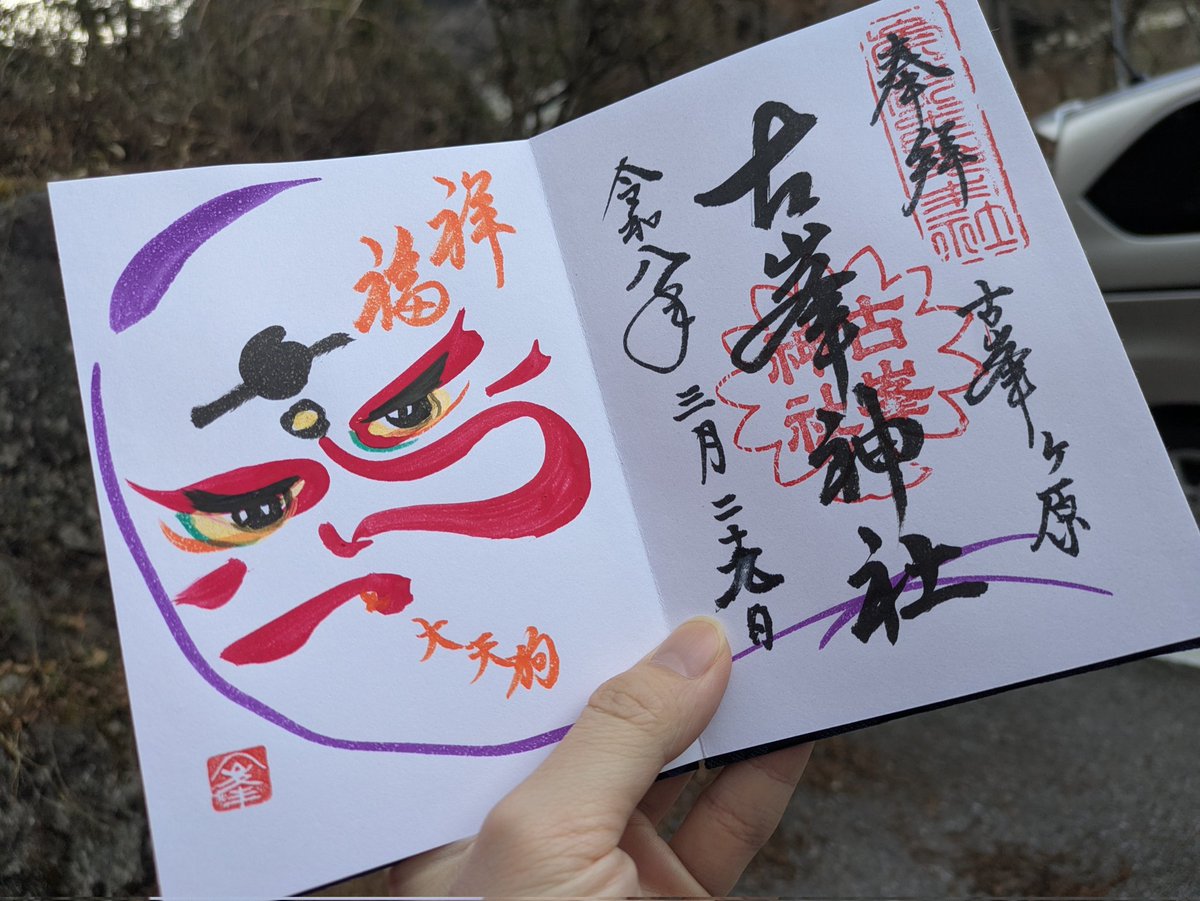 奉拝
古峯ヶ原
古峯神社
古峯神社
令和八年
三月二十九日
祥福
大天狗
峯